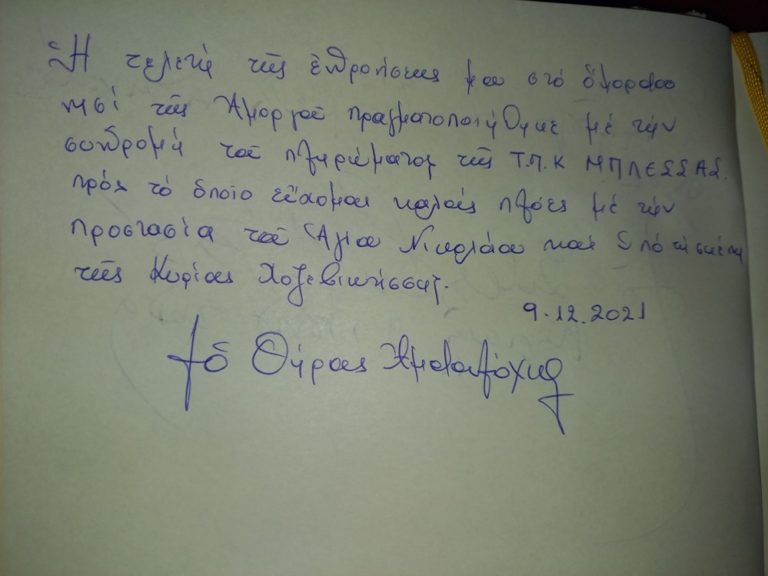 Ἡ τελετή τῆς ἐνθρονίσεως μου στό ὄμορφο
νησί τῆς Ἀμοργοῦ πραγματοποιήθηκε μέ τήν
συνδρομή τοῦ πληρώματος τῆς Τ.Π.Κ ΜΠΛΕΣΣΑΣ.
πρός τό ὁποῖο εὔχομαι καλούς πλόες μέ τήν
προστασία τοῦ Ἁγίου Νικολάου καί ὑπό τή σκέπη
τῆς Κυρίας Χοζεβιωτίσσης.
9.12.2021
† ὁ Θήρας Ἀμφιλόχιος